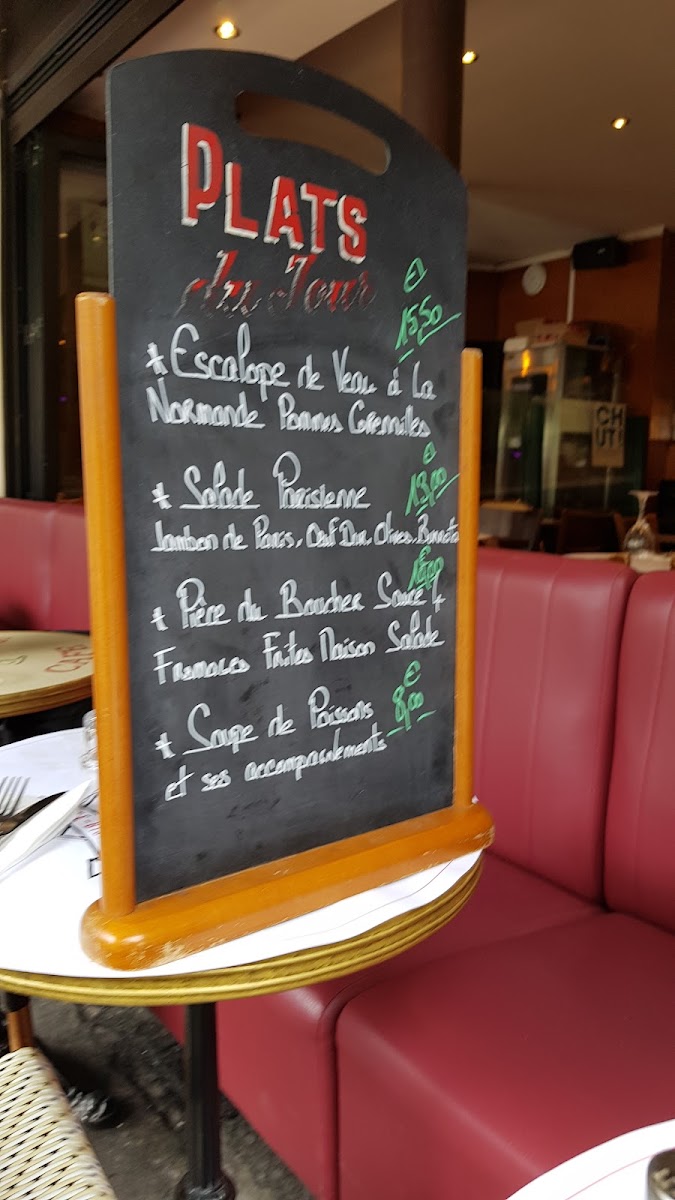 PLATS
du Jour
€
15,50
* Escalope de Veau à La
Normande Pommes Grenailles
€
13,00
* Salade Parisienne
Jambon de Paris, Oeuf Dur, Olives,
€
* Pièce du Boucher Sauce 4
Fromages Frites Maison Salade
€
8,00
* Soupe de Poissons
et ses accompagnements
CH
UT!